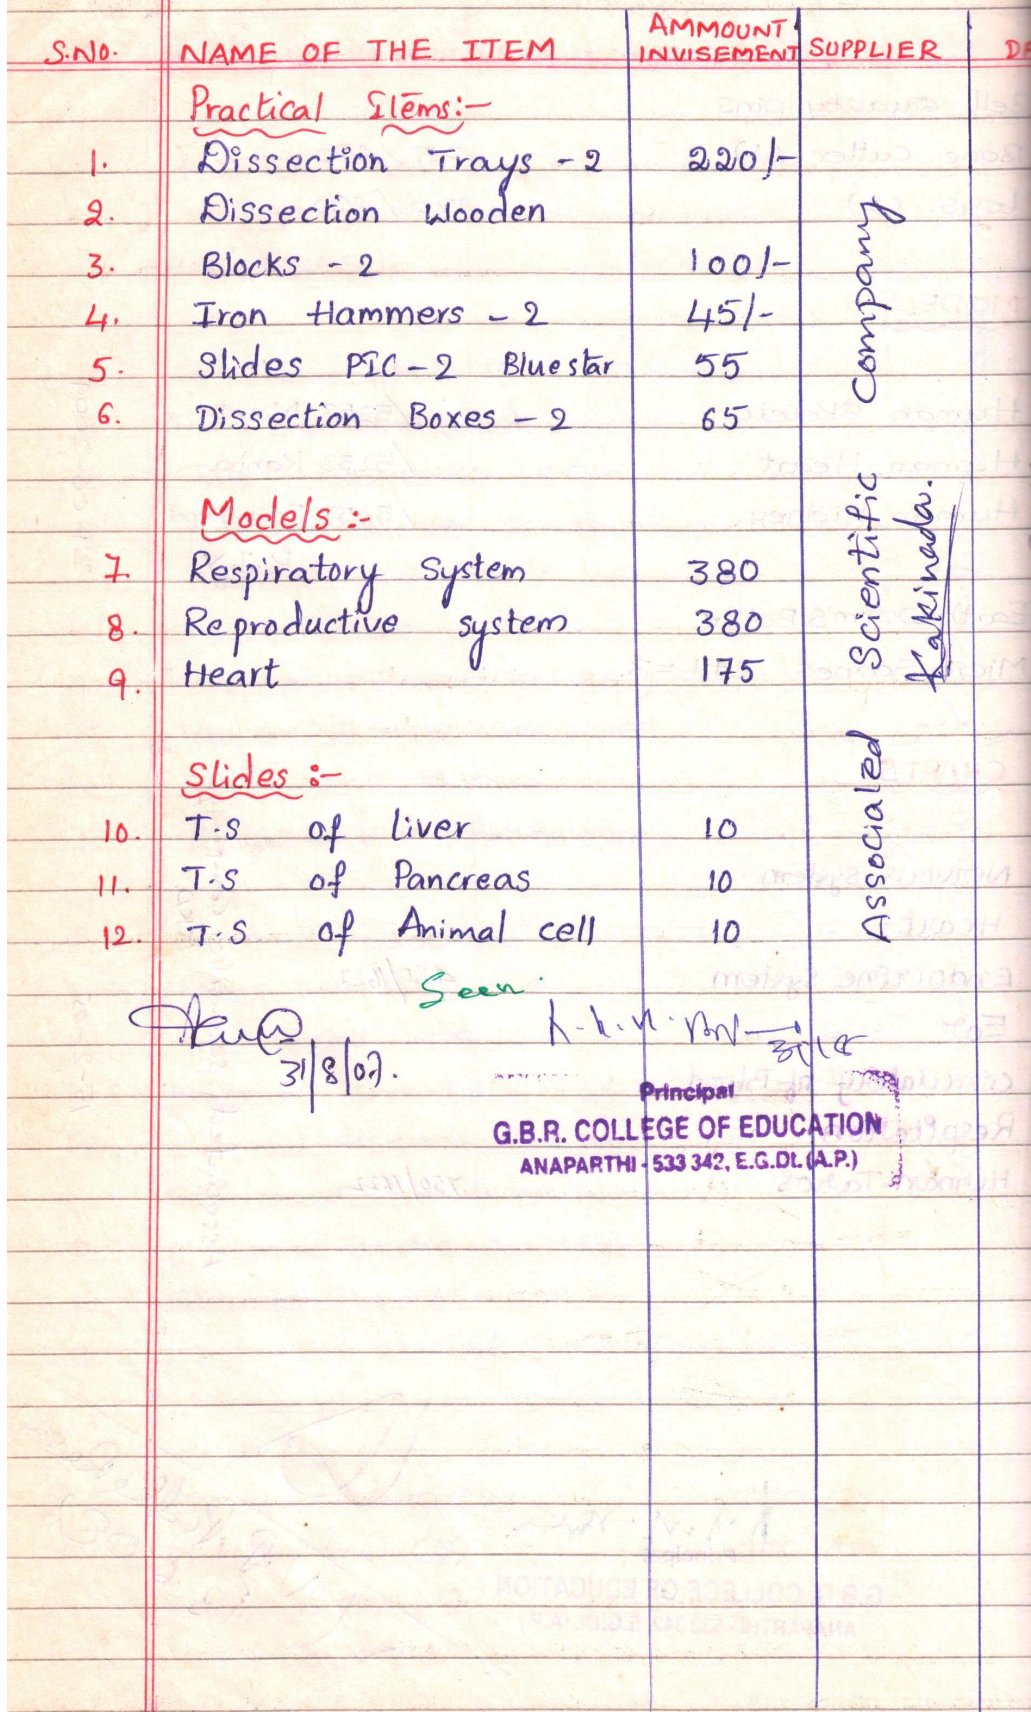 S.NO. NAME OF THE ITEM AMMOUNT INVISEMENT SUPPLIER
Practical Items:-
1. Dissection Trays - 2 220/-
2. Dissection Wooden
3. Blocks - 2 100/-
4. Iron Hammers - 2 45/-
5. Slides PIC - 2 Bluestar 55
6. Dissection Boxes - 2 65
Models :-
7. Respiratory System 380
8. Reproductive system 380
9. Heart 175
Slides :-
10. T.S of liver 10
11. T.S of Pancreas 10
12. T.S of Animal cell 10
Associated Scientific Company
Kakinada.
Seen
31/8/07.
Principal
G.B.R. COLLEGE OF EDUCATION
ANAPARTHI - 533 342, E.G.Dt. (A.P.)